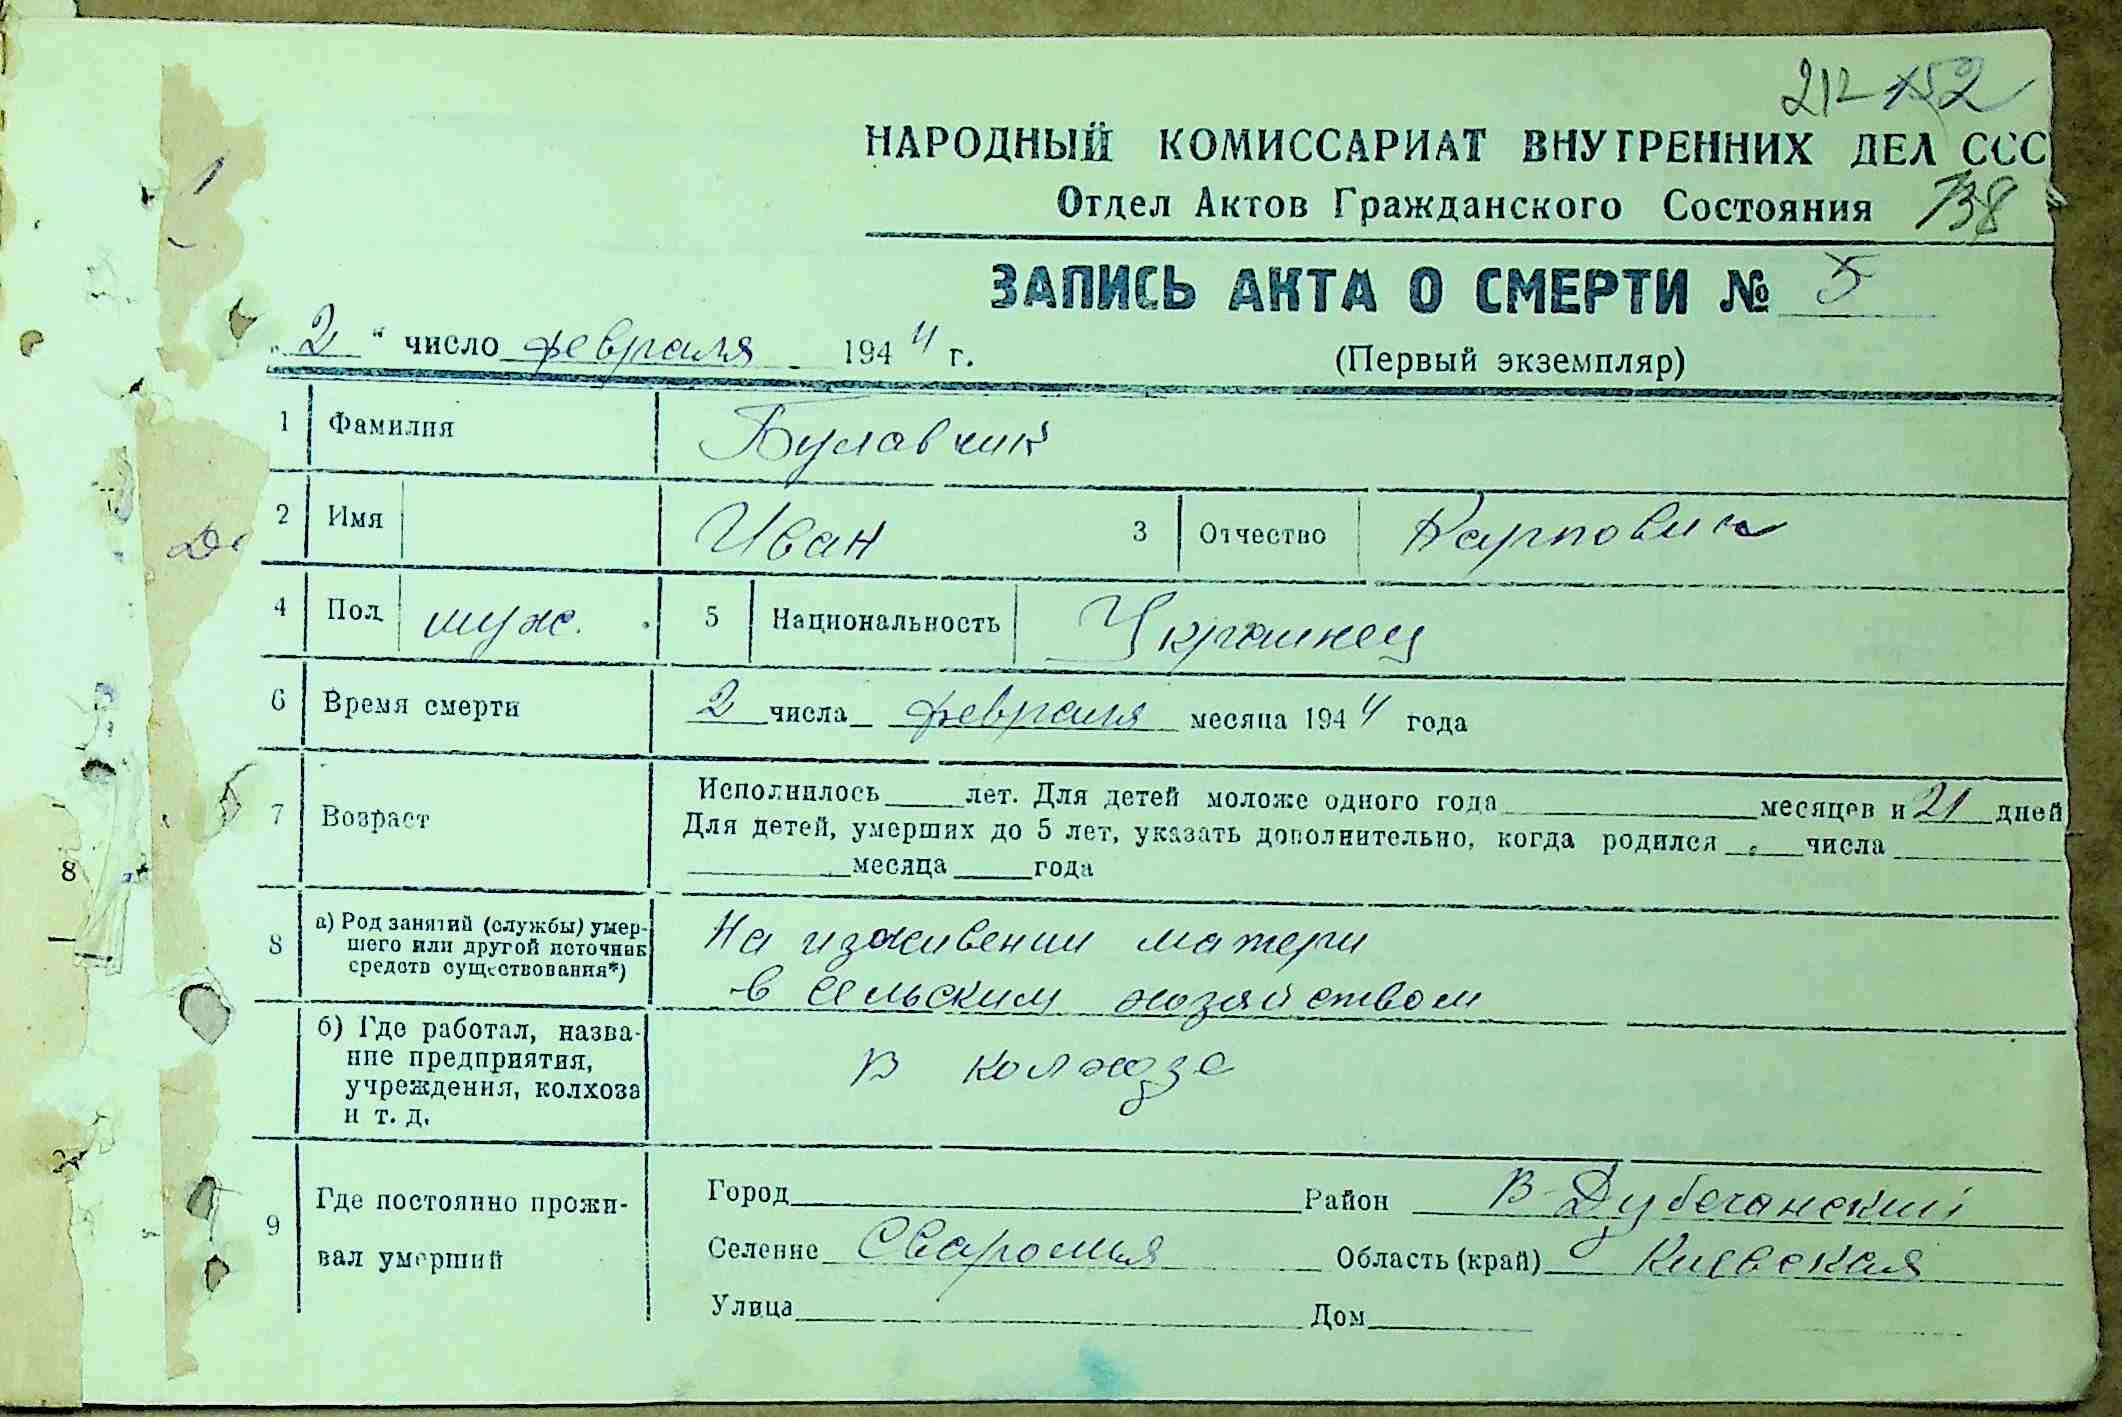 212 152
НАРОДНЫЙ КОМИССАРИАТ ВНУТРЕННИХ ДЕЛ ССС
Отдел Актов Гражданского Состояния 738
ЗАПИСЬ АКТА О СМЕРТИ № 5
„2“ число февраля 1944 г. (Первый экземпляр)
1 Фамилия Булавчик
2 Имя Иван 3 Отчество Карпович
4 Пол муж. 5 Национальность Украинец
6 Время смерти 2 числа февраля месяца 1944 года
7 Возраст Исполнилось ____ лет. Для детей моложе одного года ____ месяцев и 21 дней
Для детей, умерших до 5 лет, указать дополнительно, когда родился ____ числа ____
____ месяца ____ года
8 а) Род занятий (службы) умер-
шего или другой источник
средств существования*)
На иждивении матери
в сельским хозяйством
б) Где работал, назва-
ние предприятия,
учреждения, колхоза
и т. д.
В колхозе
9 Где постоянно прожи-
вал умерший
Город ____ Район В-Дубечанский
Селение Сваромья Область (край) Киевская
Улица ____ Дом ____
8